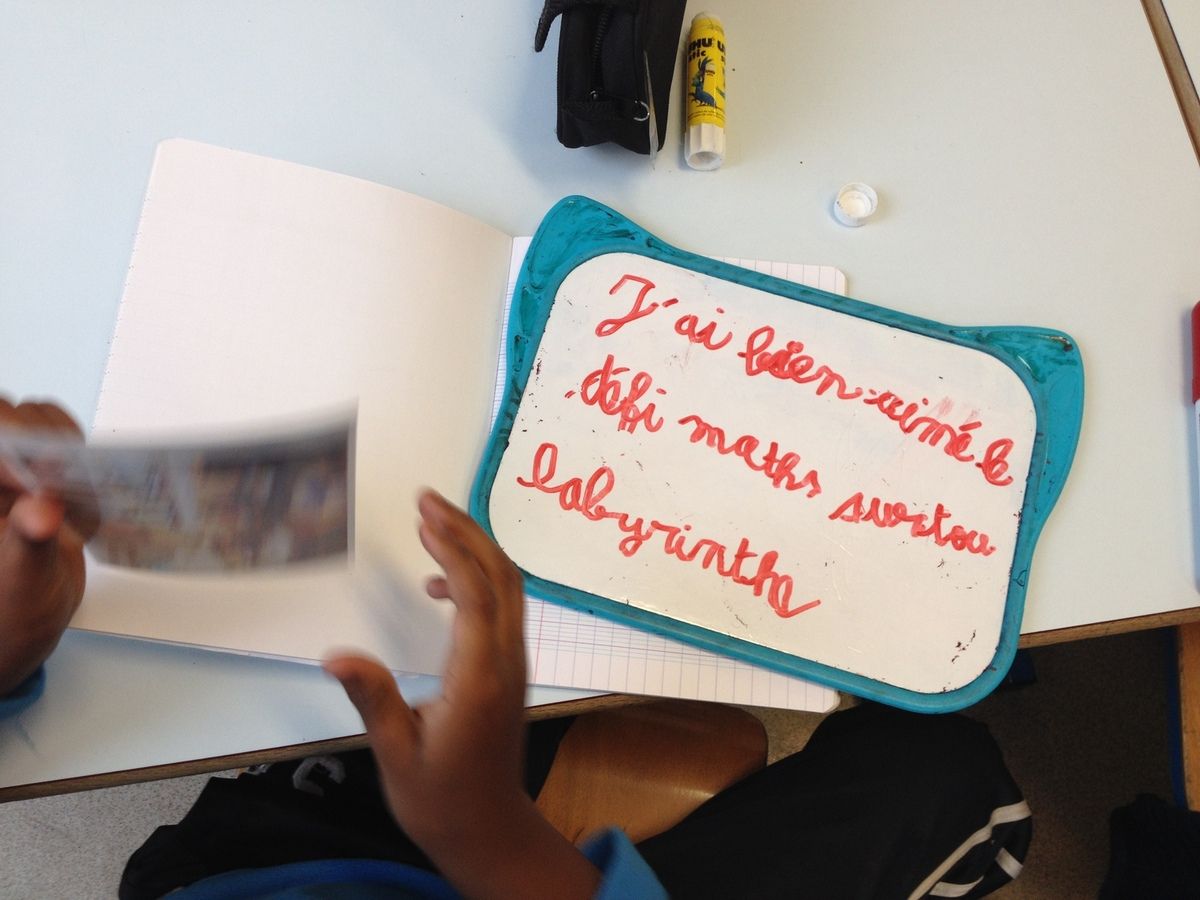 UHU
stic
J'ai bien aimé le
défi maths surtou
labyrinthe